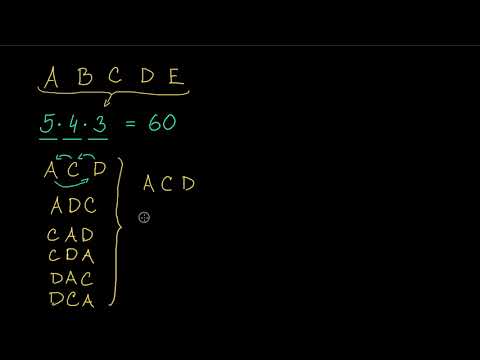 A B C D E
5·4·3 = 60
A C D
A C D
A D C
C A D
C D A
D A C
D C A